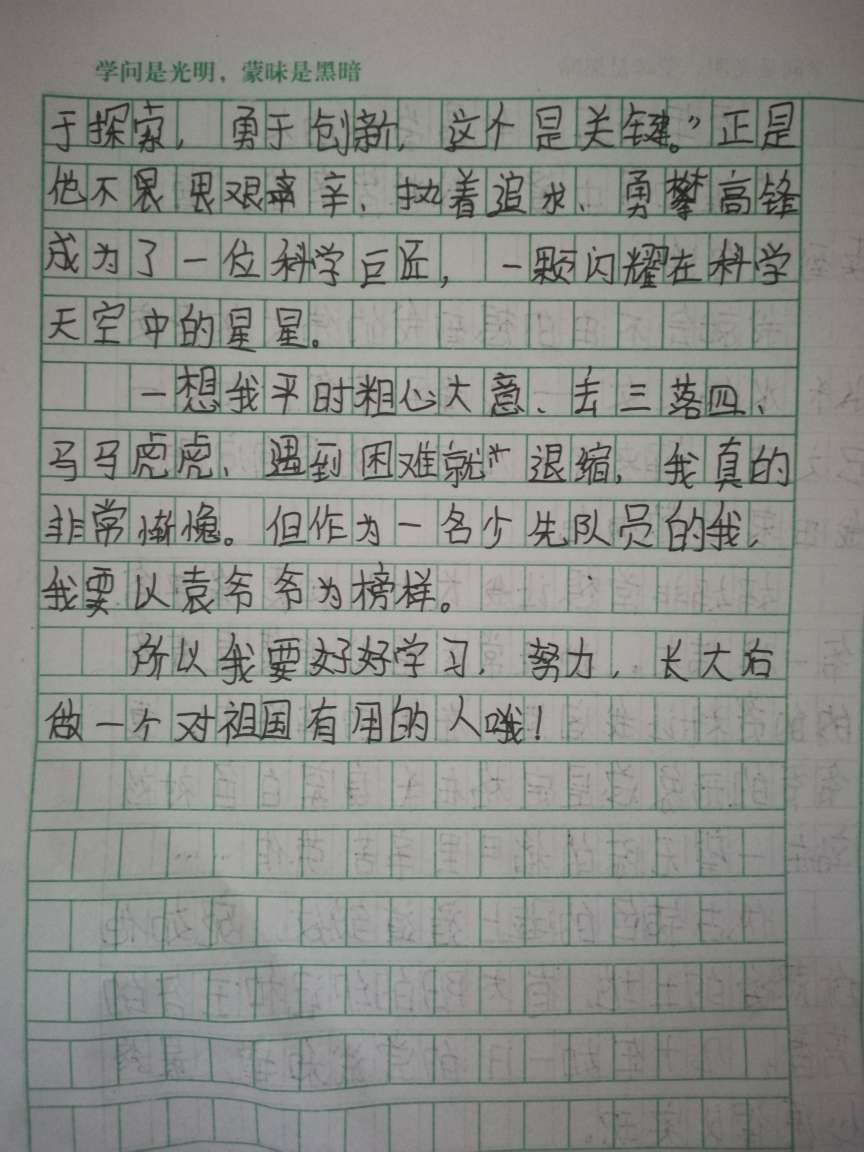 学问是光明，蒙昧是黑暗
于探索，勇于创新，这个是关键。”正是
他不畏畏艰辛、执着追求、勇攀高锋
成为了一位科学巨匠，一颗闪耀在科学
天空中的星星。
一想我平时粗心大意、丢三落四、
马马虎虎、遇到困难就退缩，我真的
非常惭愧。但作为一名少先队员的我，
我要以袁爷爷为榜样。
所以我要好好学习，努力，长大右
做一个对祖国有用的人哦！